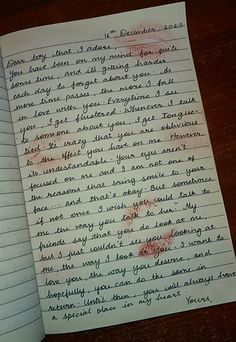 16th December, 2022
Dear boy that I adore,
You have been on my mind for quite
some time, and it's getting harder
each day to forget about you. As
more time passes, the more I fall
in love with you. Everytime I see
you, I get flustered. Whenever I talk
to someone about you, I get tongue-
tied. It's crazy that you are oblivious
to the effect you have on me. However,
its understandable. Your eyes aren't
focused on me and I am not one of
the reasons that bring smile to your
face... and that's okay. But sometimes,
if not once I wish you could talk to
me the way you talk to her. My
friends say that you do look at me,
but I just couldn't see you looking at
me, the way I look at you. I want to
love you, the way you deserve, and
hopefully, you can do the same in
return. Until then, you will always have
a special place in my heart.
Yours,